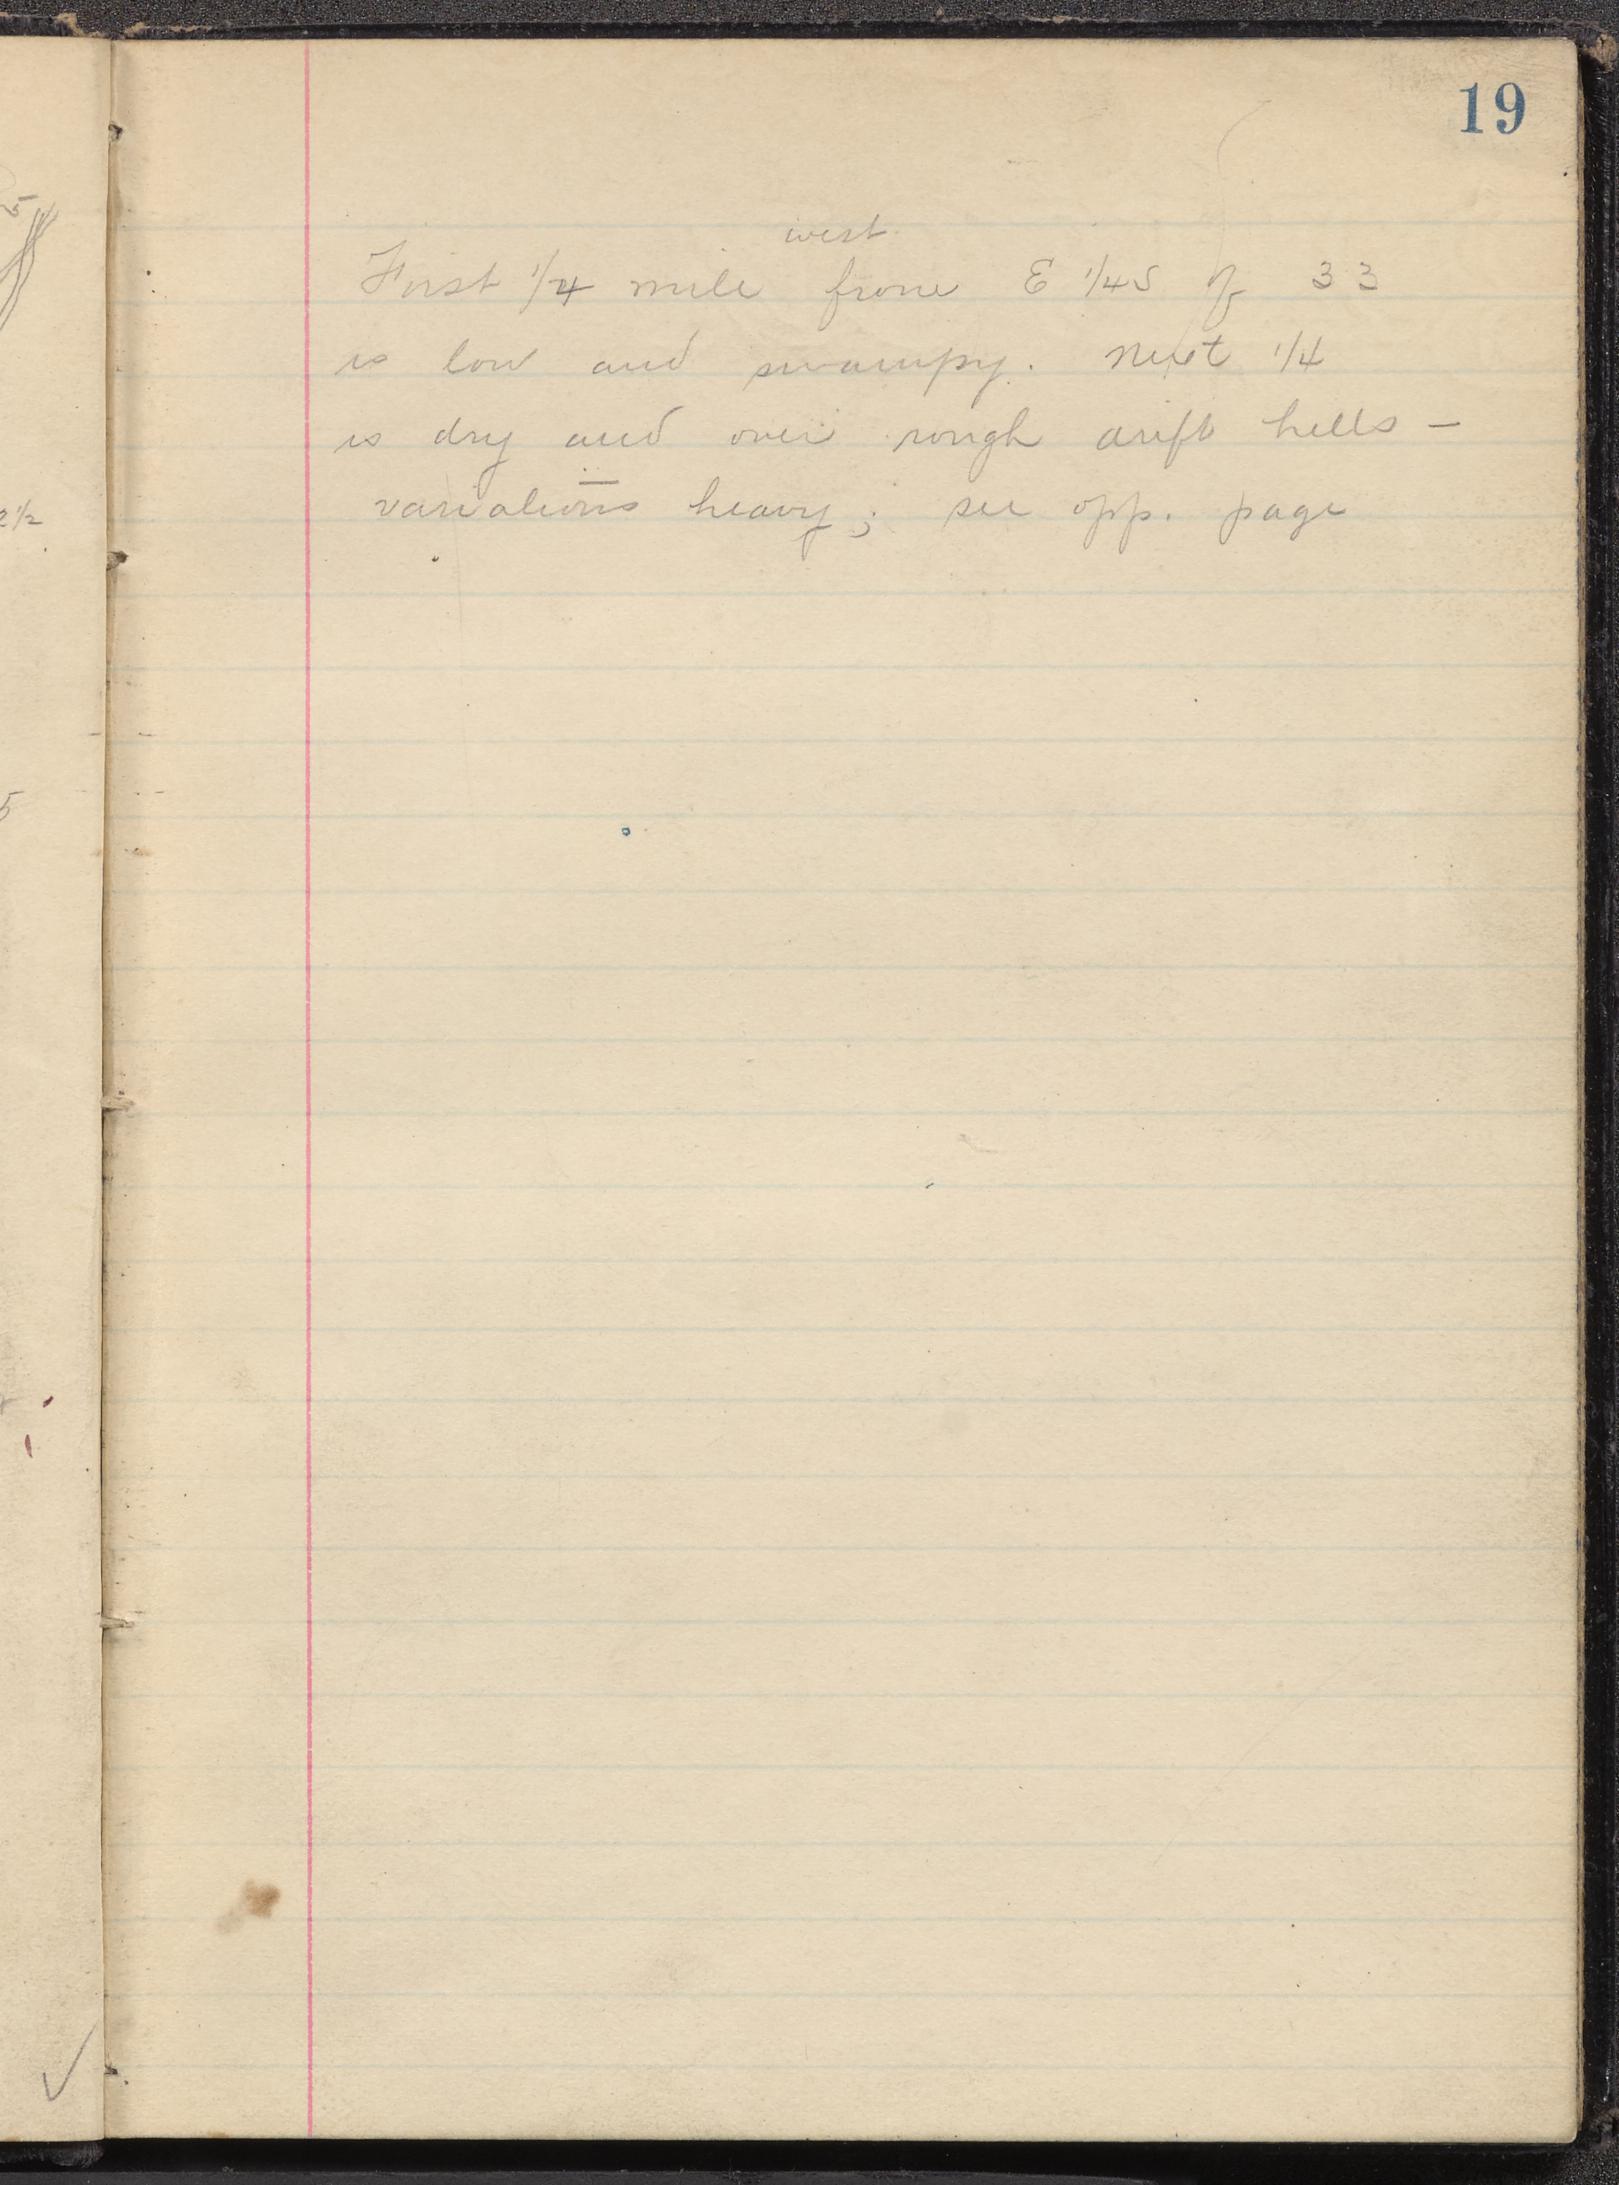 19
west
First 1/4 mile from E 1/4 S of 33
is low and swampy. Next 1/4
is dry and over rough drift hills —
variations heavy; see opp. page
5
2 1/2
5